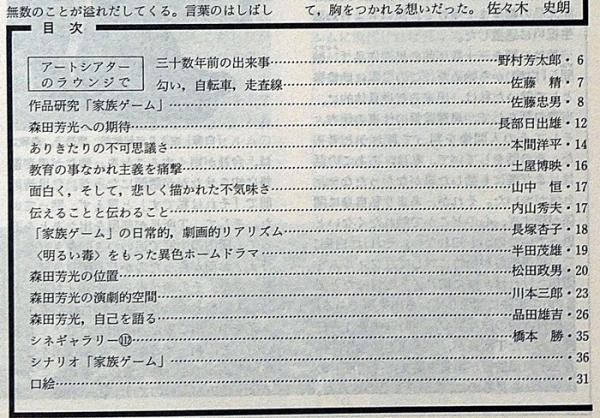 無数のことが溢れだしてくる。言葉のはしばし
て，胸をつかれる想いだった。 佐々木 史朗
目 次
アートシアター
のラウンジで
三十数年前の出来事 野村芳太郎・6
匂い，自転車，走査線 佐藤 精・7
作品研究「家族ゲーム」 佐藤忠男・8
森田芳光への期待 長部日出雄・12
ありきたりの不可思議さ 本間洋平・14
教育の事なかれ主義を痛撃 土屋博映・16
面白く，そして，悲しく描かれた不気味さ 山中 恒・17
伝えることと伝わること 内山秀夫・17
「家族ゲーム」の日常的，劇画的リアリズム 長塚杏子・18
〈明るい毒〉をもった異色ホームドラマ 半田茂雄・19
森田芳光の位置 松田政男・20
森田芳光の演劇的空間 川本三郎・23
森田芳光，自己を語る 品田雄吉・26
シネギャラリー⑪⑫ 橋本 勝・35
シナリオ「家族ゲーム」 ・36
口絵 ・31